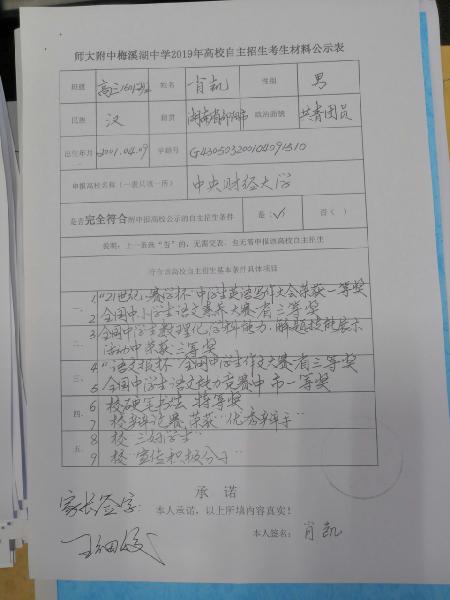 师大附中梅溪湖中学2019年高校自主招生考生材料公示表
班级 高三1601班 姓名 肖凯 性别 男
民族 汉 籍贯 湖南省邵阳市 政治面貌 共青团员
出生年月 2001.04.09 学籍号 G430503200104091510
申报高校名称（一表只填一所） 中央财经大学
是否完全符合所申报高校公示的自主招生条件 是：√ 否（ ）
说明：上一条填“否”的，无需交表，也无需申报该高校自主招生
符合该高校自主招生基本条件具体项目
一、 1 “21世纪·赛学杯”中学生英语写作大会荣获一等奖
2 全国中小学生语文素养大赛省三等奖
二、 3 全国中学生数理化学科能力·解题技能展示
活动中荣获三等奖
三、 4 “语文报杯”全国中学生作文大赛省三等奖
5 全国中学生语文能力竞赛中市一等奖
四、 6 校硬笔书法 特等奖
7 校辩论赛，荣获“优秀辩手”
五、 8 校“三好学生”
9 校“宣传积极分子”
承 诺
家长签字：
本人承诺，以上所填内容真实！
本人签名： 肖凯